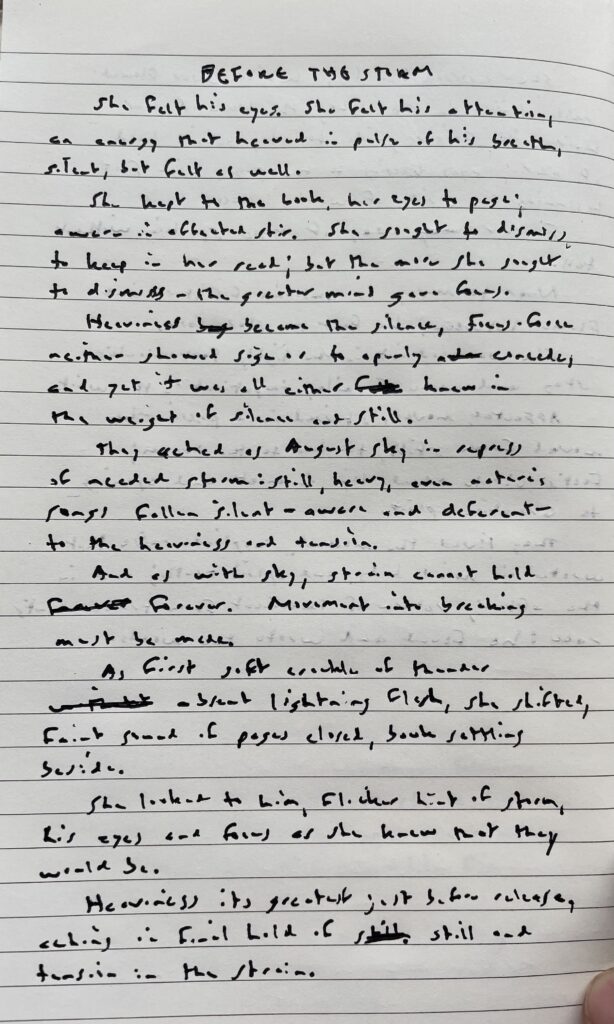 BEFORE THE STORM
She felt his eyes. She felt his attention,
an energy that heaved in pulse of his breath,
silent, but felt as well.
She kept to the book, her eyes to page;
aware in affected stir. She sought to dismiss,
to keep in her read; but the more she sought
to dismiss - the greater mind gave focus.
Heaviness became the silence, focus-force
neither showed sign or to openly concede,
and yet it was all either knew in
the weight of silence and still.
They ached as August sky in repress
of needed storm: still, heavy, even nature's
songs fallen silent - aware and deferent -
to the heaviness and tension.
And as with sky, strain cannot hold
forever. Movement into breaking
must be made.
As first soft crackle of thunder
absent lightning flash, she shifted,
faint sound of pages closed, book settling
beside.
She looked to him, flicker hint of storm,
his eyes and focus as she knew that they
would be.
Heaviness its greatest just before release,
aching in final hold of still and
tension in the strain.